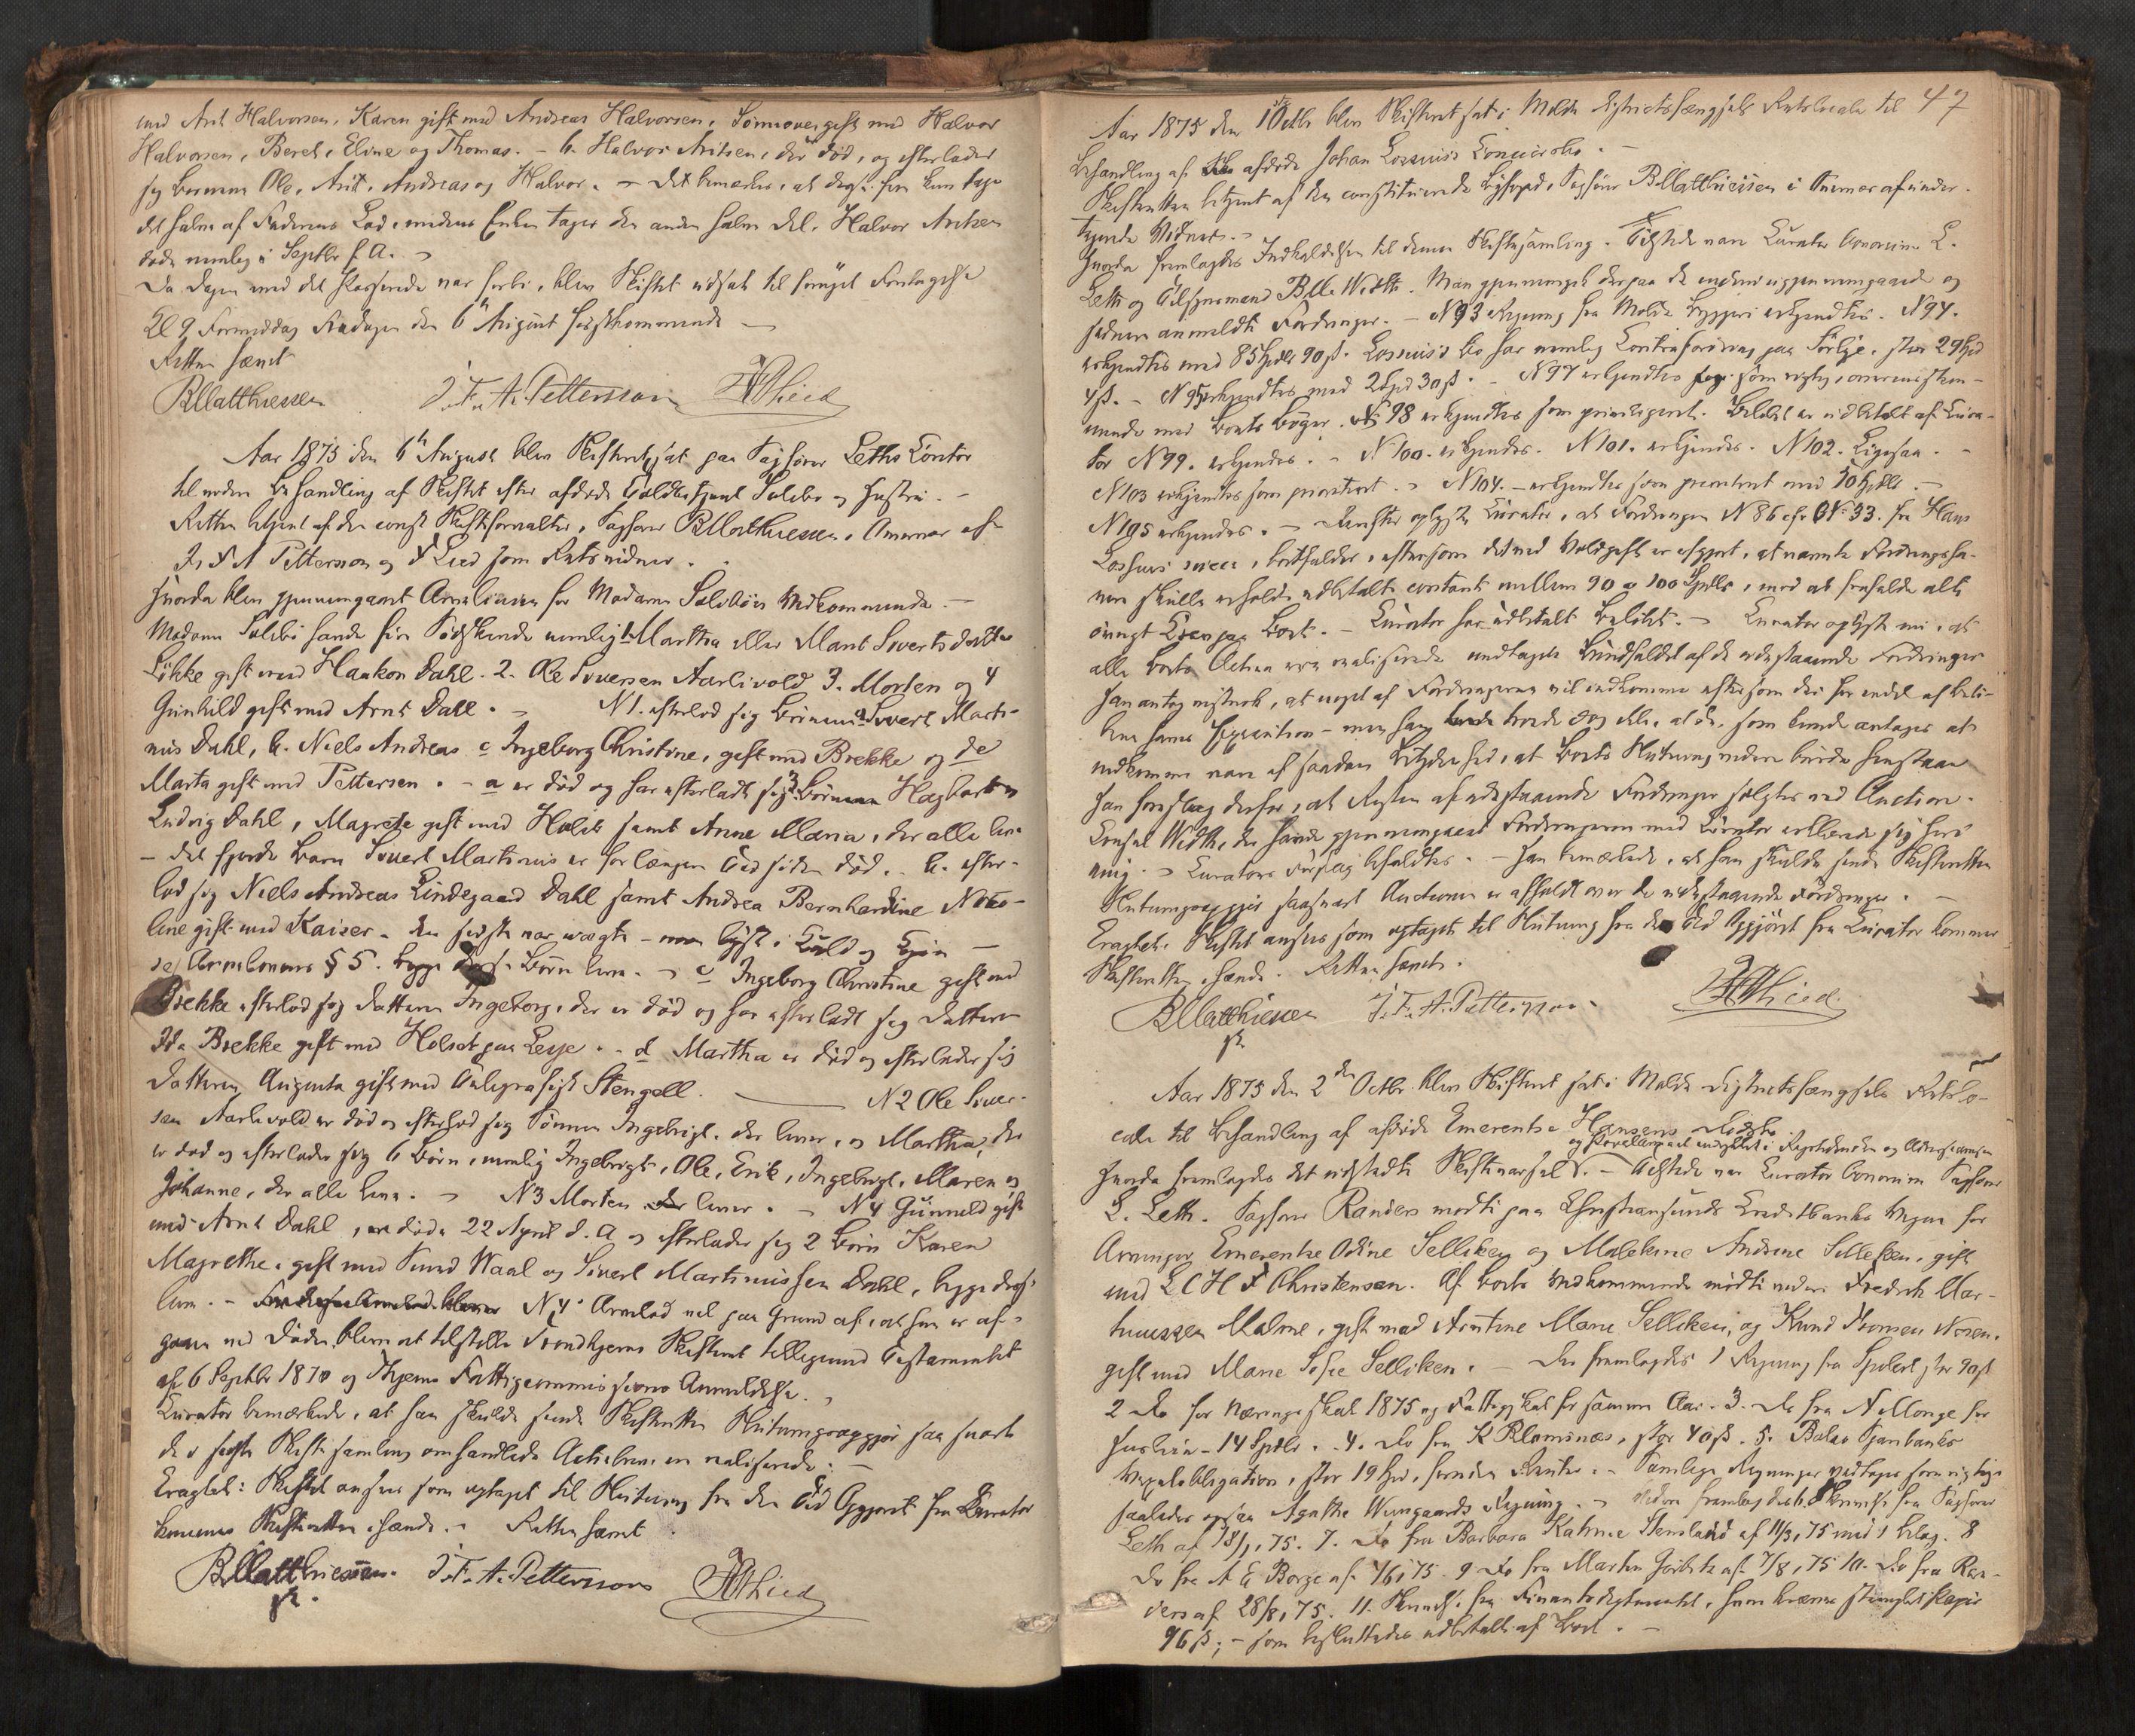 med Arnt Halvorsen, Karen gift med Andreas Halvorsen, gift med Halvor
Halvorsen, Beret, Eline og Thomas. – b. Halvor Arntsen, der er død, og efterlader
sig Børnene Ole, Arnt, Andreas og Halvor. – Det bemærkes, at kun tage
det halve af Faderens Lod, medens Enken tager den anden halve Del. Halvor Arntsen
døde nemlig i Septbr f. A. –
Da Dagen med det Passerede var forbi, blev Skiftet udsat til fornyet Foretagelse
Kl 9 Formiddag Fredagen den 6te August førstkommende –
Retten hævet
BMatthiessen J. F. A. Pettersson
Aar 1875 den 6te August blev Skifteret sat paa Sagfører Leths Contor
til videre Behandling af Skiftet efter afdøde Toldbetjent Solebo og Hustru. –
Retten betjent af den const Skifteforvalter, Sagfører BMatthiessen, i Nærvær af
J. F. A. Pettersson og Lied som Retsvidner.
Hvorda blev gjennemgaaet Arvelinien for Madame Solebøes Vedkommende. –
Madame Solebø havde fire Sødskende nemlig 1. Martha eller Marit Sivertsdatter
Løkke gift med Haakon Dahl. 2. Ole Siversen Aarlivold 3. Morten og 4
Gunhild gift med Arnt Dahl. – N 1. efterlod sig Børnene a Sivert Marti-
nus Dahl, b. Niels Andreas c Ingeborg Christine, gift med Brekke og de
Marta gift med Pettersen. – a er død og har efterladt sig 3 Børn
Ludvig Dahl, Magrete gift med samt Anne Maria, der alle leve
– det fjerde Barn Sivert Martinus er for længere Tid siden død. b. efter-
lod sig Niels Andreas Lindegaard Dahl samt Andrea Bernhardine Niko-
line gift med Kaiser. Den sidste var uægte – men lyst i Kuld og Kjøn –
Arvelovens § 5. begge disse Børn leve. – c Ingeborg Christine gift med
Brekke efterlod sig Datteren Ingeborg, der er død og har efterladt sig Datteren
Ida Brekke gift med Holset paa Lesje. – d Martha er død og efterlader sig
Datteren Augusta gift med Telegrafist Stengell. — N 2 Ole Siver-
sen Aarlivold er død og efterlod sig Sønnen Ingebrigt, der lever, og Martha, der
er død og efterlader sig 6 Børn, nemlig Ingebrigt, Ole, Erik, Ingebrigt, Maren og
Johanne, der alle leve. – N 3 Morten lever. – N 4 Gunild gift
med Arnt Dahl, døde 22 April d. A og efterlader sig 2 Børn Karen
Magrethe, gift med Knud Waal og Sivert Martinussen Dahl, begge disse
leve. – N 4 Arvelod vel paa Grund af, at hun er af-
gaaen ved Døden blive at tilstille Trondhjems Skifteret tilligemed Testamentet
af 6 Septbr 1870 og Thjems Fattigcommissions Anmeldelse. –
Curator bemærkede, at han skulde sende Skifteretten Slutningsopgjør saa snart
de i sidste Skiftesamling omhandlede Activer ere realiserede. –
Eragtet: Skiftet ansees som optaget til Slutning fra den Tid Opgjøret fra Curator
kommer Skifteretten ihænde. – Retten hævet.
BMatthiessen J. F. A. Pettersson
47
Aar 1875 den 1ste Octbr blev Skifteret sat i Molde Districtsfængsels Retslocale til
Behandling af afdøde Johan Lossius's Concursbo. –
Skifteretten betjent af den constituerede Byfoged, Sagfører BMatthiessen i Nærvær af under-
tegnede Vidner. –
Hvorda fremlagdes Indkaldelsen til denne Skiftesamling. Tilstede vare Curator bonorum L.
Leth og Tilsynsmand Width. Man gjennemgik derpaa de endnu uigjennemgaaede og
senere anmeldte Fordringer. – N 93 Regning fra Molde Bryggeri erkjendtes. N 94.
erkjendtes med 85 Spdlr 90 ß. Lossius's bo har nemlig Contrafordring stor 29 Spd
4 ß. – N 95 erkjendtes med 2 Spd 30 ß. – N 97 erkjendtes som rigtig, overensstem-
mende med Boets Bøger. N 98 erkjendtes som prioriteret. Beløbet er udbetalt af Cura-
tor N 99. erkjendes. – N 100. erkjendes. N 101. erkjendes. N 102. Ligesaa. –
N 103 erkjendtes som prioritert. – N 104. – erkjendtes som prioritert med 50 Spdlr. –
N 105 erkjendes. – Derefter oplyste Curator, at Fordringen N 86 cfr N 33. fra Hans
Lossius's bortfalder, eftersom det ved Voldgift er afgjort, at nævnte Fordringsha-
ver skulle erholde udbetalt contant mellem 90 a 100 Spdlr, mod at frafalde alt
øvrigt Krav paa Boet. – Curator har udbetalt Beløbet. – Curator oplyste nu, at
alle Boets Activa ere realiserede undtagen Bundfaldet af de udestaaende Fordringer
Han antog vistnok, at noget af Fordringerne vil indkomme eftersom der for endel af
– men han troede dog ikke, at det, som kunde antages at
indkomme vare af saadan Betydenhed, at Boets Slutning videre burde henstaae
Han foreslog derfor, at Resten af udestaaende Fordringer solgtes ved Auction.
Consul Width, der havde gjennemgaaet Fordringerne med Curator erklærede sig
enig. – Curators Forslag befulgtes. – Han bemærkede, at han skulde sende Skifteretten
Slutningsopgjør saasnart Auctionen er afholdt over de udestaaende Fordringer. –
Eragtet: Skiftet ansees som optaget til Slutning fra den Tid Opgjøret fra Curator kommer
Skifteretten ihænde. Retten hævet.
BMatthiessen J. F. A. Pettersson
Aar 1875 den 2den Octbr. blev Skifteret sat i Molde Districtsfængsels Retslo-
cale til Behandling af afdøde Emerentse Hansens Dødsbo.
Hvorda fremlagdes det udstedte Skiftevarsel. – Tilstede var Curator bonorum Sagfører
L. Leth. Sagfører Randers mødte paa Christiansunds Creditbanks Vegne for
Arvinger Emerentse Odine Selliken og Malekine Andrine Selliken, gift
med L C H F Christensen. Af Boets Vedkommende mødte videre Fredrik Mar-
Malme, gift med Arntine Marie Selliken, og Knud
gift med Marie Sofie Selliken. – Der fremlagdes 1 Regning fra stor 90 ß
2 Do for Næringsskat 1875 og Fattigskat for samme Aar. 3. Do fra N Monge for
Husleie – 14 Spdlr. – 4. Do fra K stor 40 ß. 5.
Vexelobligation, stor 19 Spd, foruden Renter. – Samtlige Regninger vedtoges som rigtige
saaledes ogsaa Agathe Regning. – Videre fremlagdes 6. fra Sagfører
Leth af 18/1, 75. 7. Do fra Barbara af 11/3, 75 med 1 Bilag. 8
Do fra A E Borge af 4/6, 75. 9 Do fra Marten af 7/8, 75 10. Do fra Ran-
ders af 28/8, 75. 11. fra Finantsdepartementet, stemplet Papir
96 ß; – som besluttedes udbetalt af Boet. –